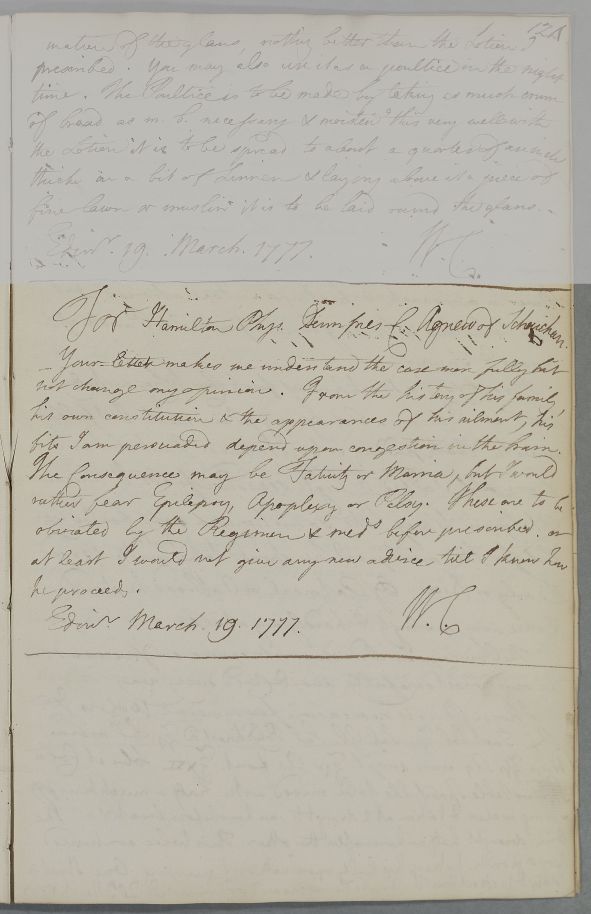 124
matter of the glans, nothing better than the Lotion I
prescribed. You may also use it as a poultice in the night
time. The Poultice is to be made by taking as much crum
of bread as m. b. necessary & moisten'g this very well with
the Lotion it is to be spread to about a quarter of an inch
thick in a bit of Linnen & laying above it a piece of
fine lawn or muslin it is to be laid round the glans.
Edinr. 19. March. 1777. W.C.
For Hamilton Phys. Agnew of
Your Letter makes me understand the case more fully but
not change my opinion. From the history of his family,
his own constitution & the appearances of his ailment, his
fits I am persuaded depend upon congestion in the brain.
The Consequence may be Fatuity or Mania, but I would
rather fear Epilepsy, Apoplexy or Palsy. These are to be
obviated by the Regimen & meds before prescribed. or
at least I would not give any new advice till I know how
he proceeds.
Edinr. March. 19. 1777. W.C.